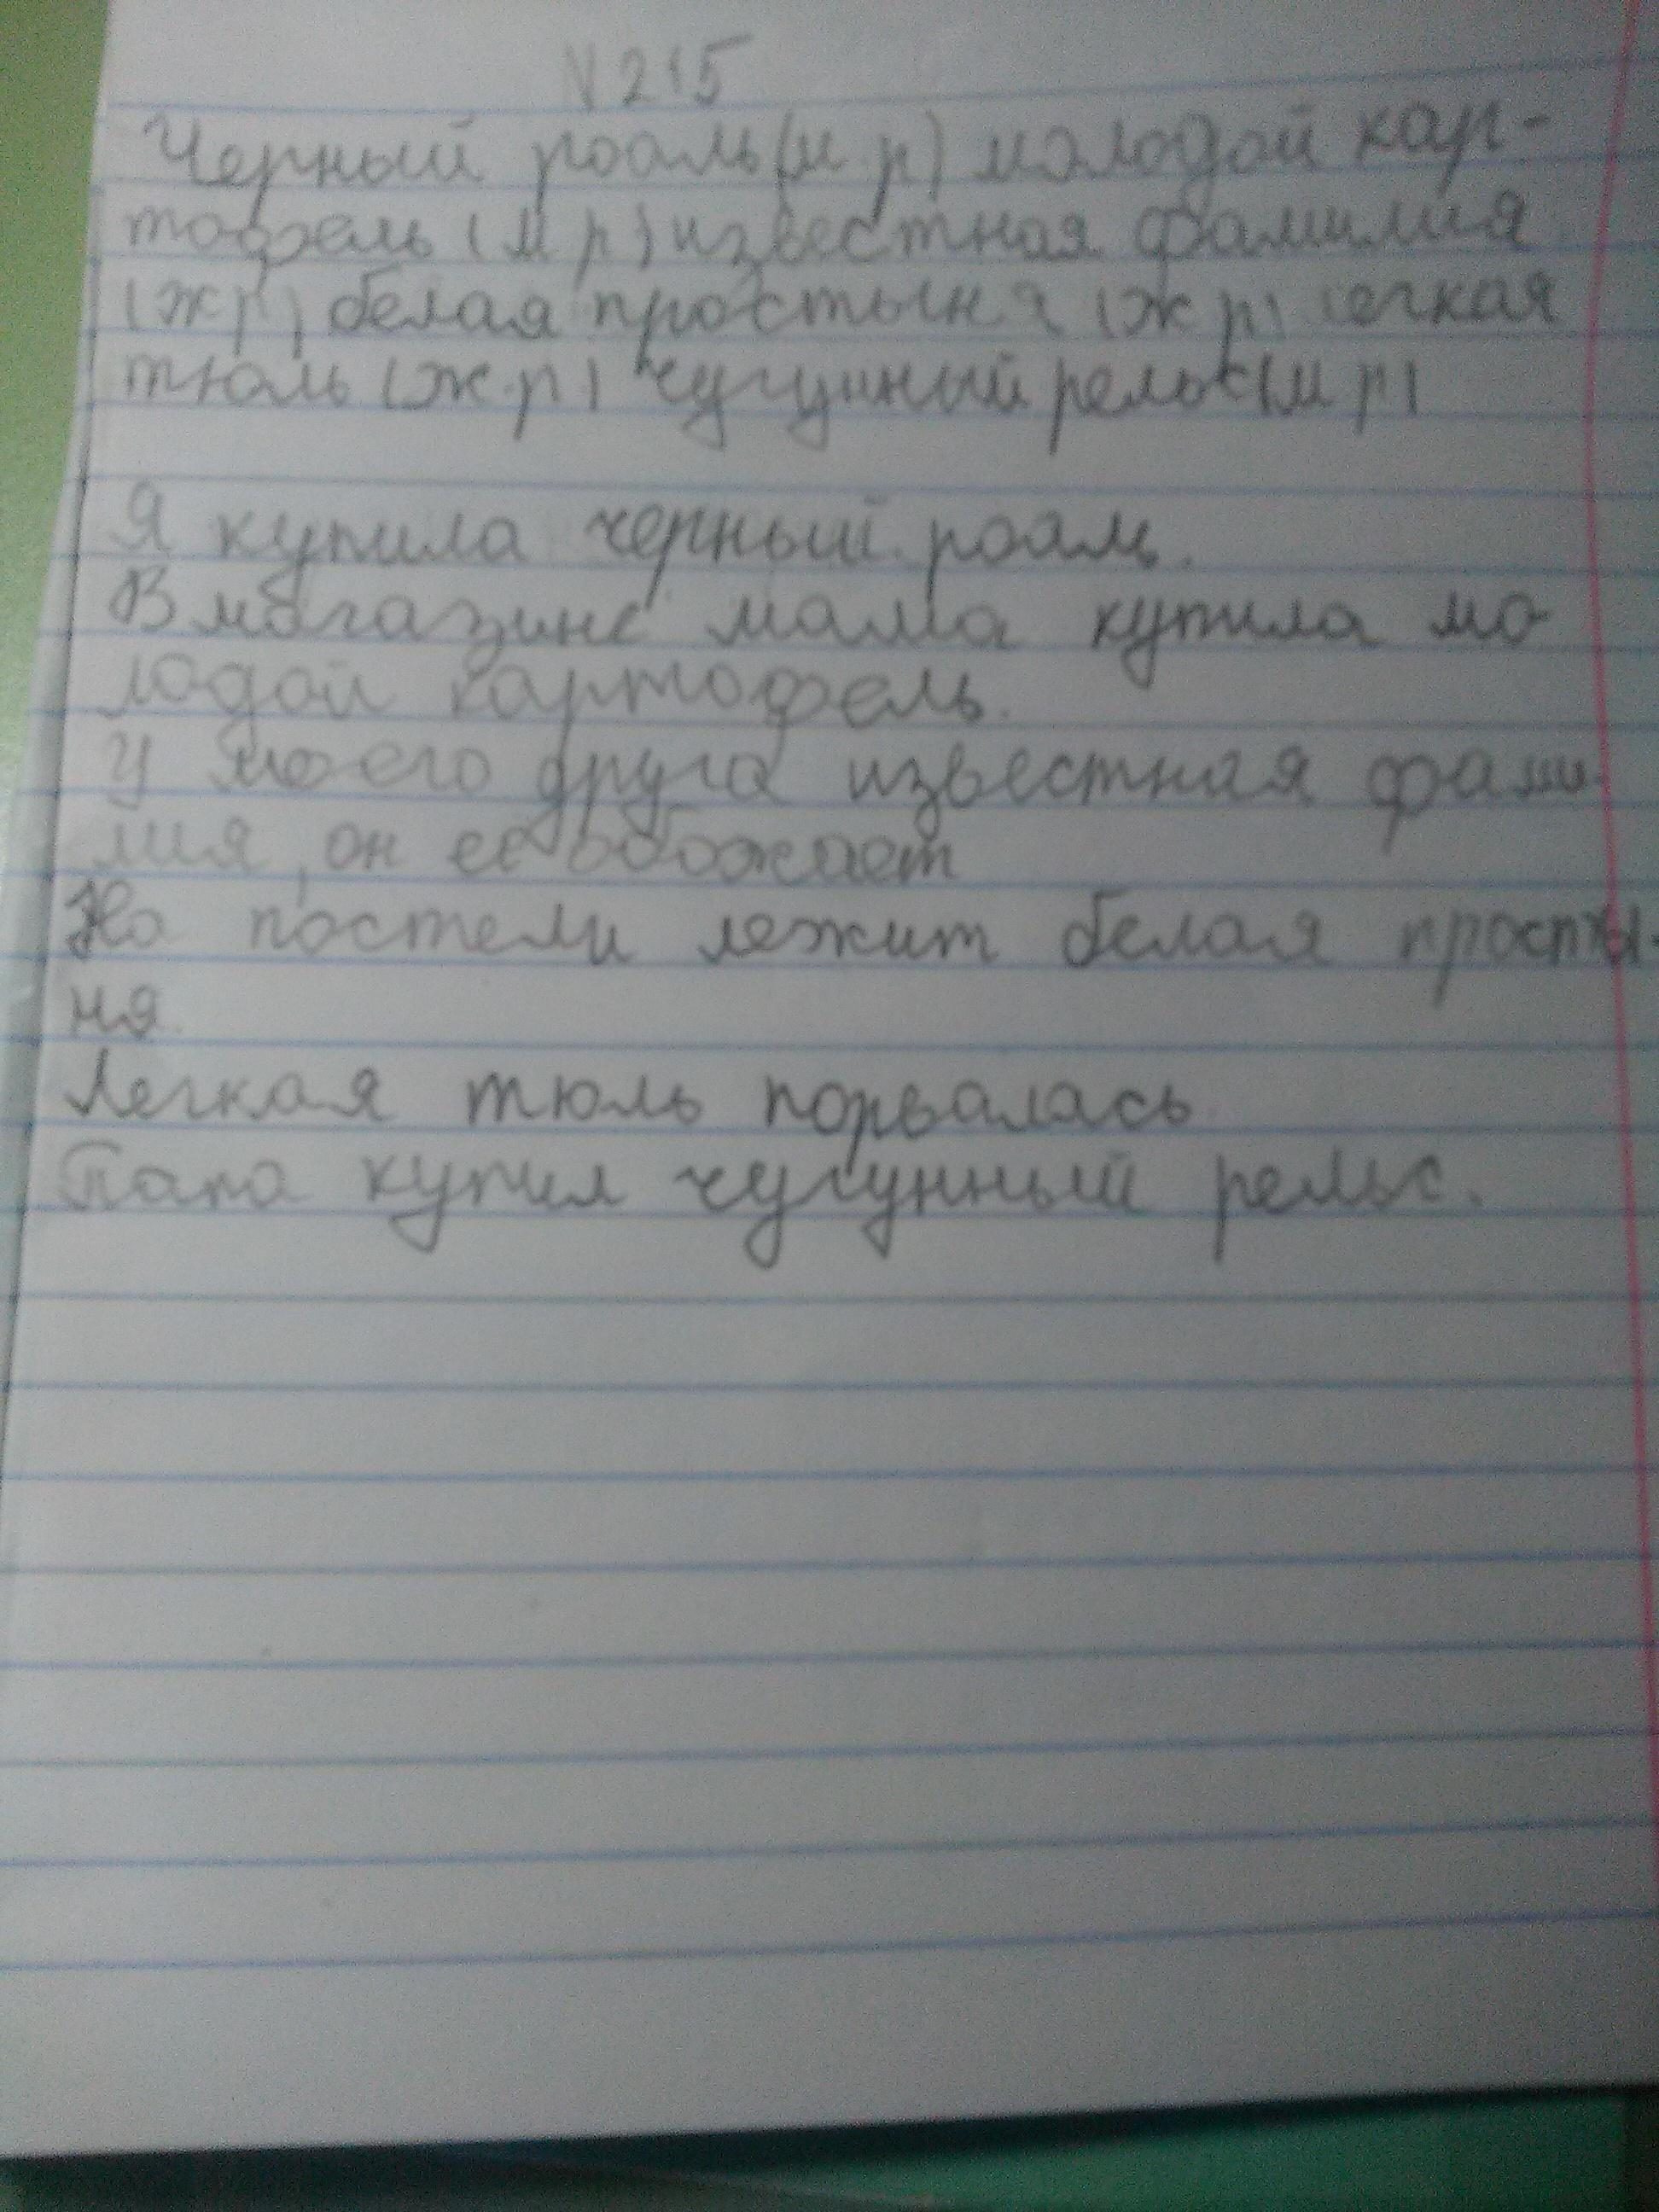 N 215
Черный рояль (м.р) молодой кар-
тофель (м р) известная фамилия
(ж р) белая простыня (ж р) легкая
тюль (ж.р) чугунный рельс (м р)
Я купила черный рояль.
В магазине мама купила мо-
лодой картофель.
У моего друга известная фами-
лия, он её обожает
На постели лежит белая просты-
ня.
Легкая тюль порвалась.
Папа купил чугунный рельс.